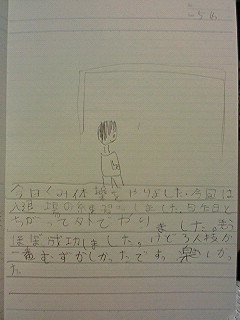 今日くみ体操をやりました。今回は
入退場の練習をしました。5年目と
ちがって外でやりました。
ほぼ成功しました。けど3人技が
一番むずかしかったです。楽しかっ
た